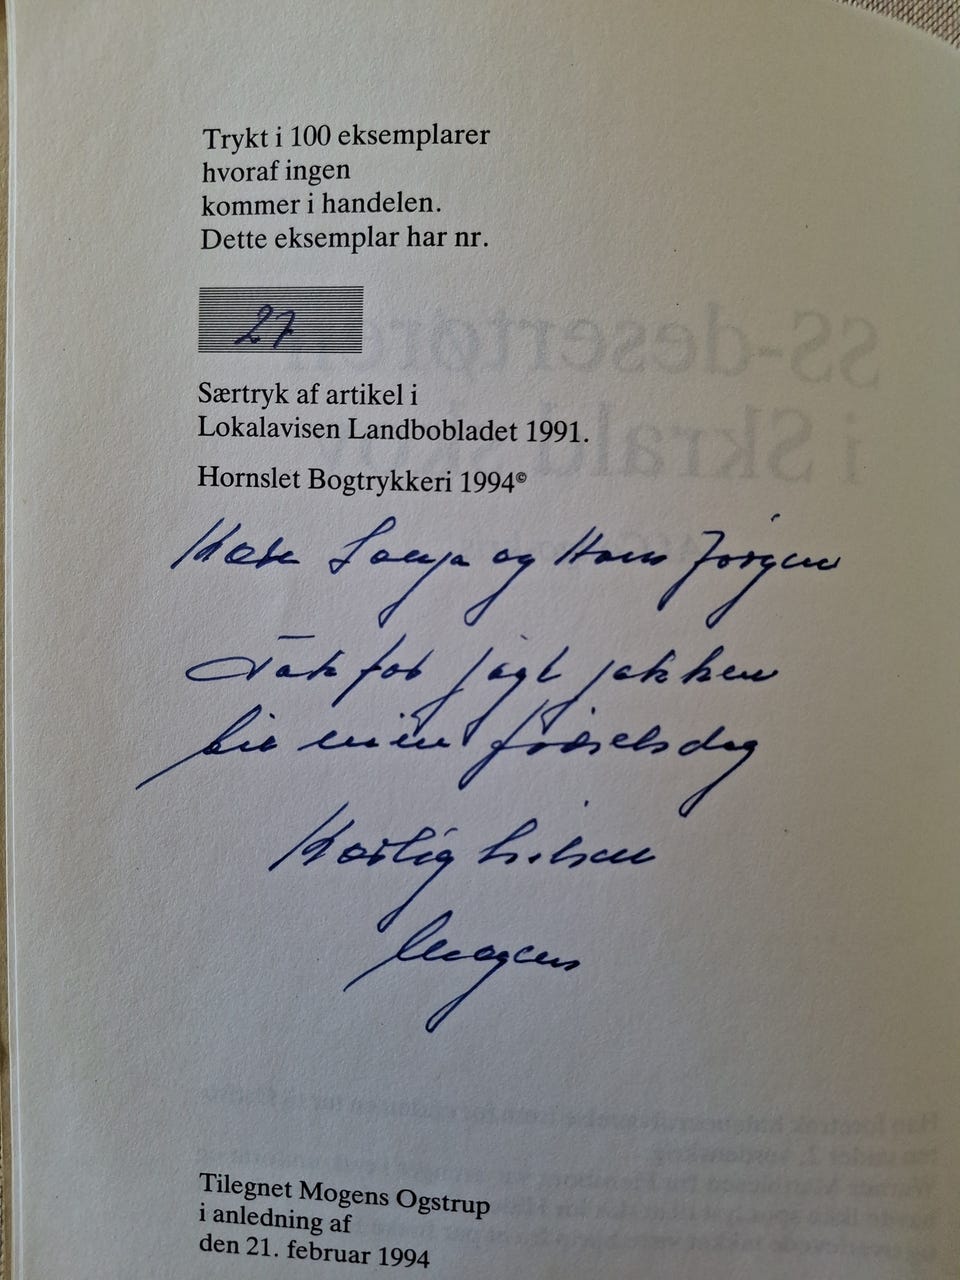 Trykt i 100 eksemplarer
hvoraf ingen
kommer i handelen.
Dette eksemplar har nr.
27
Særtryk af artikel i
Lokalavisen Landbobladet 1991.
Hornslet Bogtrykkeri 1994©
Kære Sonja og Hans Jørgen
Tak for jagt jakken
til min fødselsdag
Kærlig hilsen
Mogens
Tilegnet Mogens Ogstrup
i anledning af
den 21. februar 1994
SS-desertøren
i Skrald skov